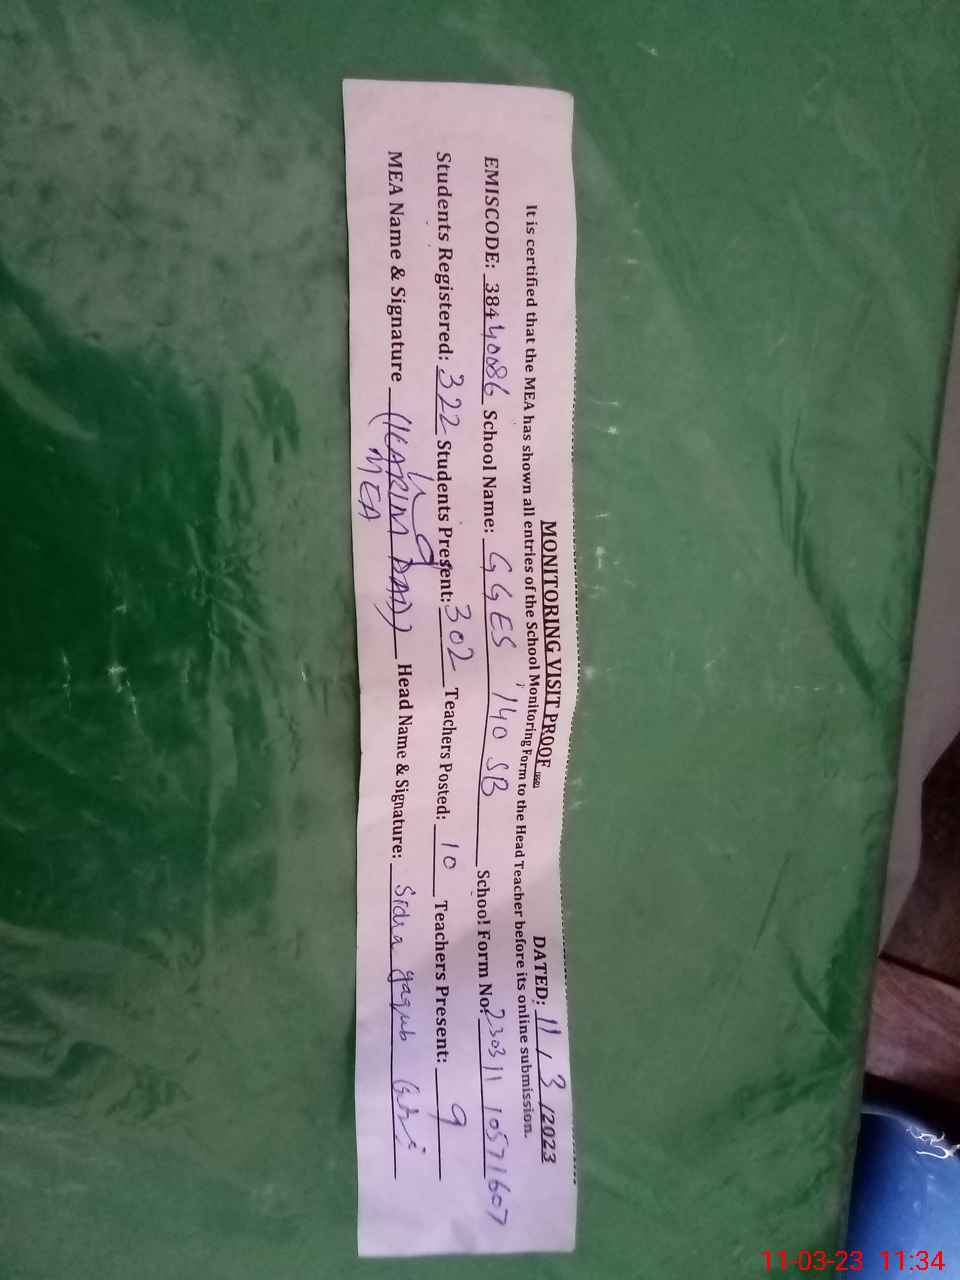 MONITORING VISIT PROOF
DATED: 11 / 3 /2023
It is certified that the MEA has shown all entries of the School Monitoring Form to the Head Teacher before its online submission.
EMISCODE: 38440086 School Name: GGES 140 SB School Form No: 23031110571607
Students Registered: 322 Students Present: 302 Teachers Posted: 10 Teachers Present: 9
MEA Name & Signature (KARIM DAD) Head Name & Signature: Sidra Yaqub
MEA
11-03-23 11:34